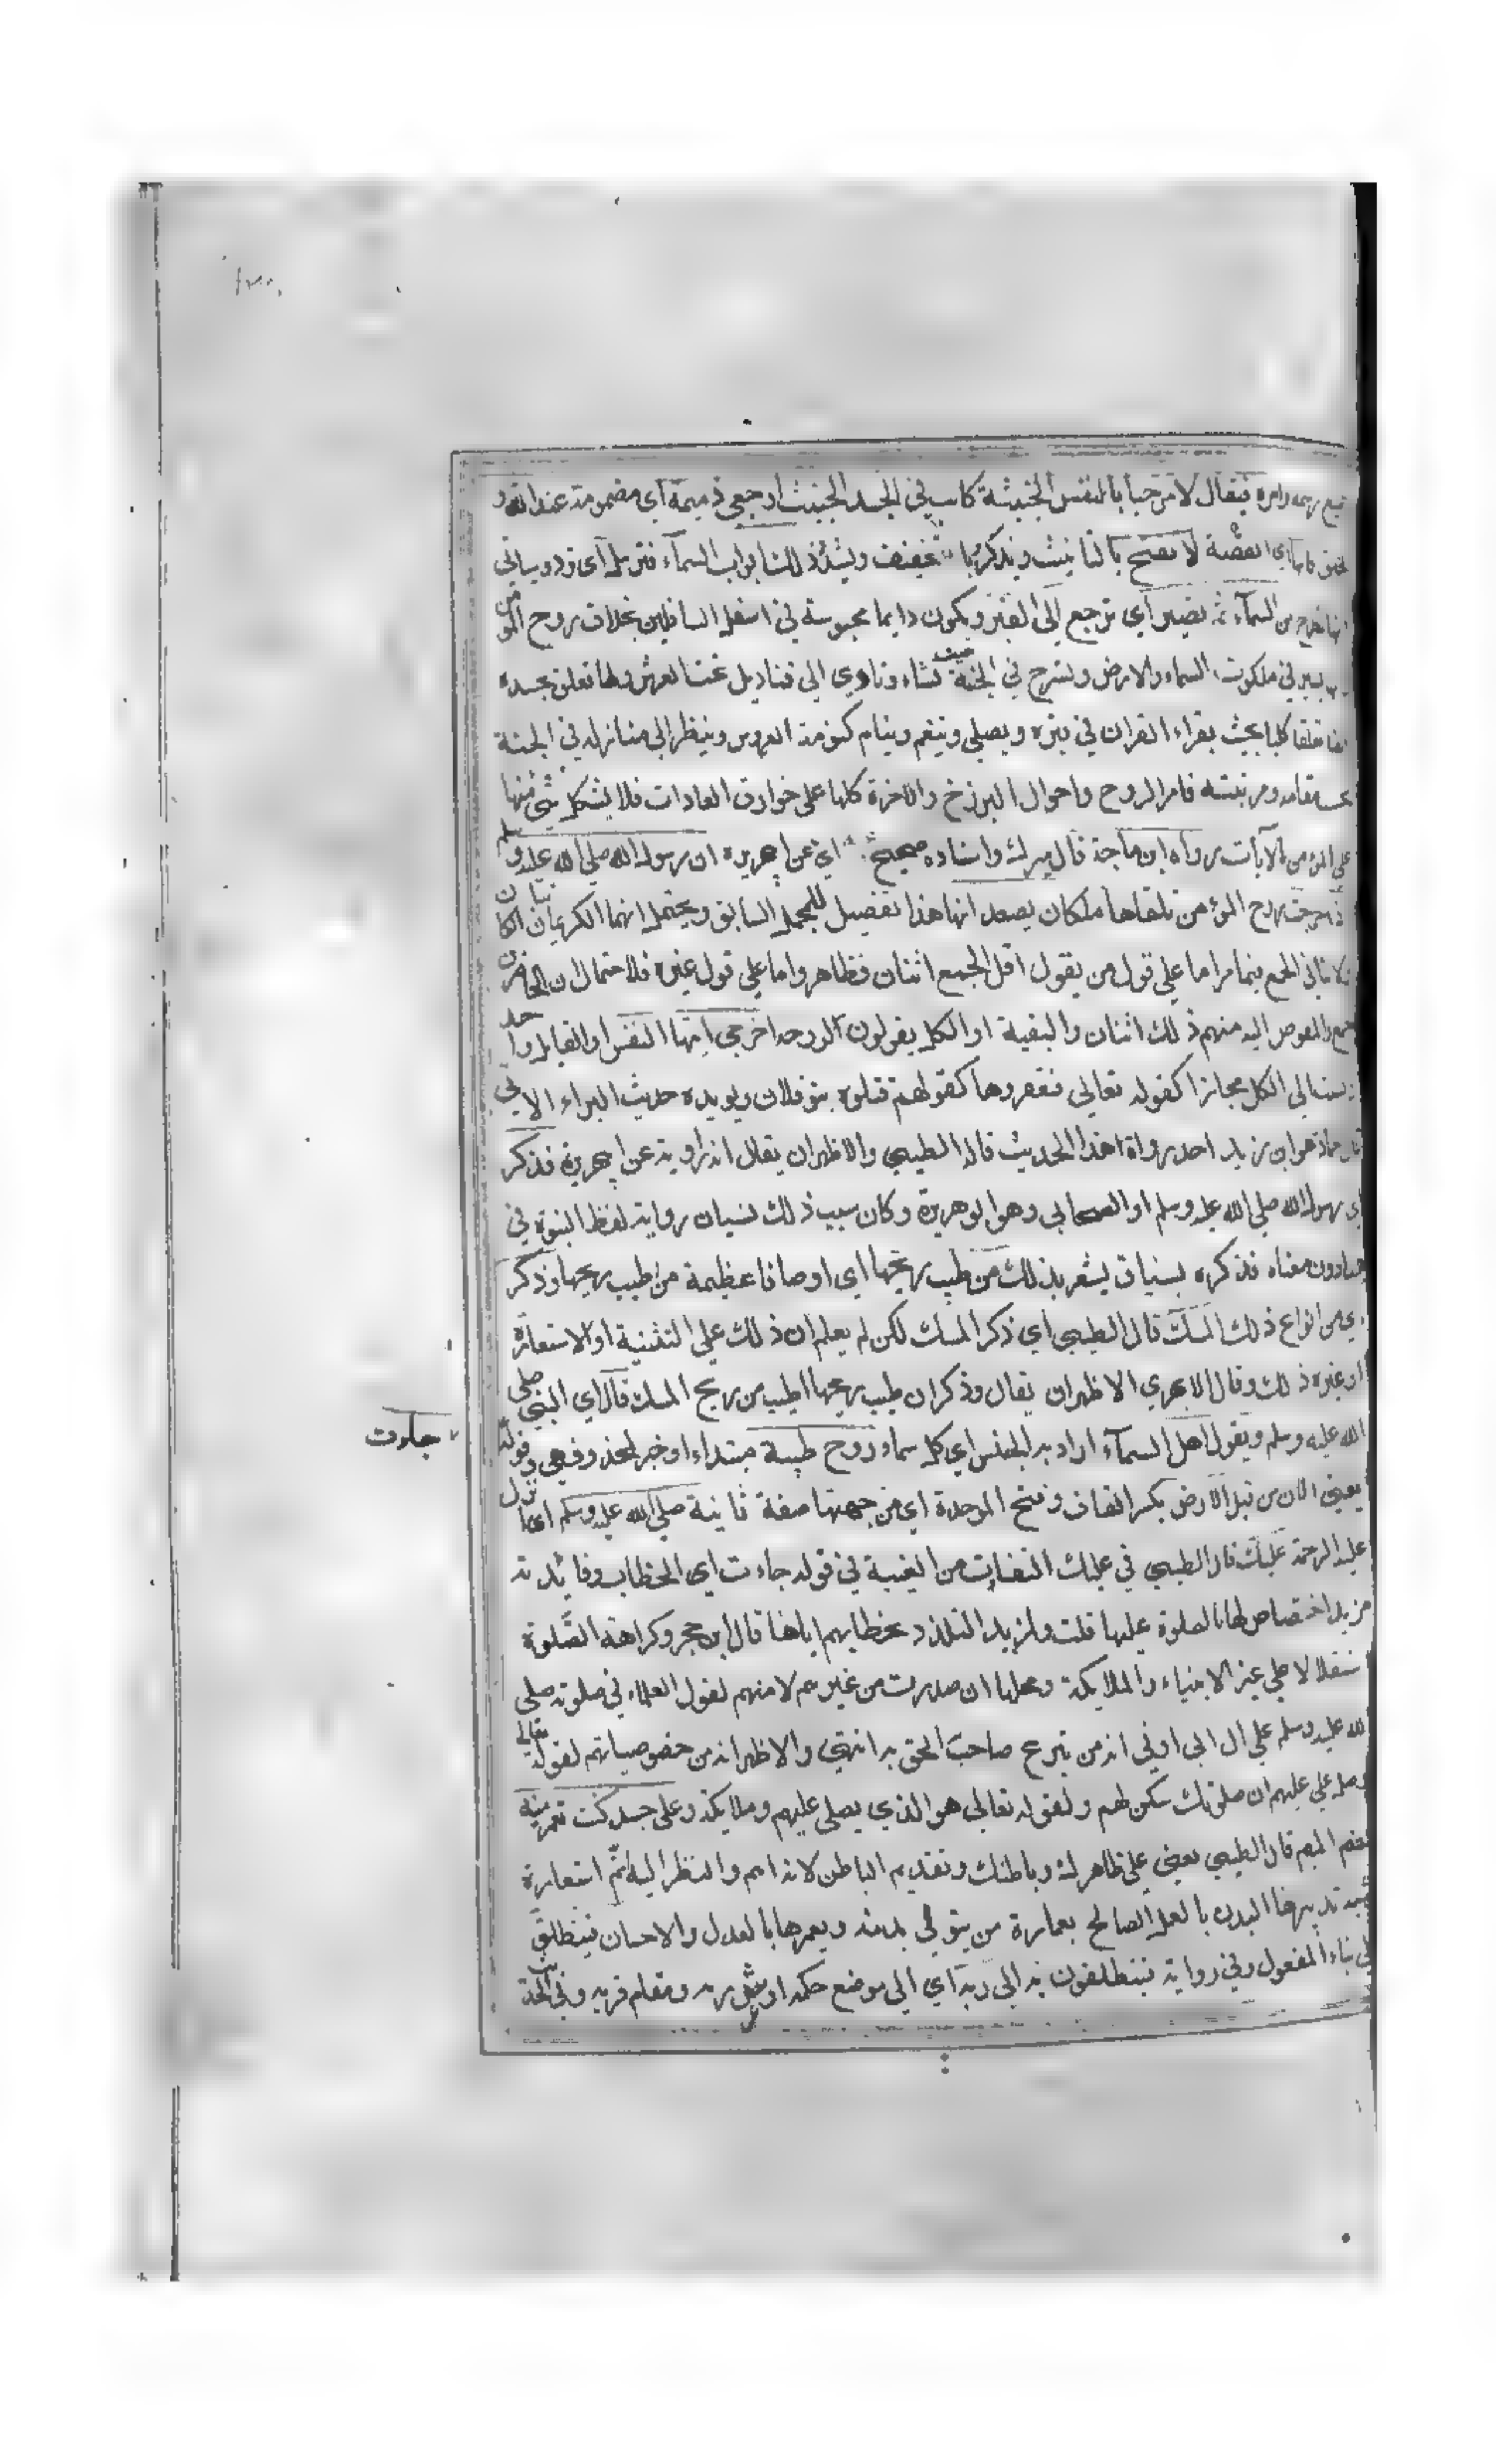 فيقال لا مرحبا بالنفس الخبيثة كانت في الجسد الخبيث ارجعي ذميمة اي مذمومة عند الله و
لا تفتح بالتانيث ويذكر بالتخفيف ويشدد لك ابواب السمآء فترسل اي ترد وسياتي
انها تطرح من السمآء ثم تصير اي ترجع الى القبر ويكون دايما محبوسة في اسفل السافلين بخلاف روح المؤمن
تسير في ملكوت السماء والارض وتسرح في الجنة حيث تشاء وتاوي الى قناديل تحت العرش ولها تعلق بجسده
ايضا تعلقا كليا بحيث يقراء القران في قبره ويصلي ويتنعم وينام كنومة العروس وينظر الى منازله في الجنة
بحسب مقامه ومرتبته فامر الروح واحوال البرزخ والاخرة كلها على خوارق العادات فلا يشكل شئ منها
على المؤمن بالآيات رواه ابن ماجة قال ميرك واسناده صحيح اي عن ابي هريرة ان رسول الله صلي الله عليه وسلم
اذا خرجت روح المؤمن تلقاها ملكان يصعدانها هذا تفصيل للمجمل السابق ويحتمل انهما الكريمان الكاتبان
ولا ينافي الجمع فيما مر اما على قول من يقول اقل الجمع اثنان فظاهر واما على قول غيره فلاحتمال ان الحاضرين
جمع والمفوض اليه منهم ذلك اثنان والبقية او الكل يقولون لروحه اخرجي ايتها النفس او القايل واحد
ونسب الى الكل مجازا كقوله تعالى فعقروها كقولهم قتلوه بنو فلان ويويده حديث البراء الاتي
قال حماد هو ابن زيد احد رواة هذا الحديث قاله الطيبي والاظهر ان يقال انه راويه عن ابي هريرة فذكر
اي رسول الله صلي الله عليه وسلم او الصحابي وهو ابو هريرة وكان سبب ذلك نسيان رواية لفظ النبوة في
هذا دون معناه فذكره بسياق يشعر بذلك من طيب ريحها اي اوصافا عظيمة من طيب ريحها وذكر
اي من انواع ذلك المسك قال الطيبي اي ذكر المسك لكن لم يعلم ان ذلك على التشبيه او الاستعارة
او غيره ذلك وقال الابهري الاظهر ان يقال وذكر ان طيب ريحها اطيب من ريح المسك قال اي النبي صلى
الله عليه وسلم ويقول اهل السمآء اراد به الجنس اي كل سماء روح طيبة مبتداء او خبر لمحذوف هي وقوله
جاءت
يعني الان من قبل الارض بكسر القاف وفتح الموحدة اي من جهتها صفة ثانية صلى الله عليه وسلم اي انزل
عليك الرحمة عليك قال الطيبي في عليك التفات من الغيبة في قوله جاءت اي الخطاب وفائدته
مزيد اختصاص لها بالصلوة عليها قلت ولمزيد التلذذ بخطابهم اياها قال ابن حجر وكراهة الصلوة
استقلالا على غير الانبياء والملايكة ومحلها ان صدرت من غيرهم لا منهم لقول العلماء في صلوته صلى
الله عليه وسلم على ال ابي اوفى انه من تبرع صاحب الحق به انتهى والاظهر انه من خصوصياتهم لقوله تعالى
وصل عليهم ان صلوتك سكن لهم ولقوله تعالى هو الذي يصلي عليهم وملايكته وعلى جسد كنت تعمرينه
بضم الميم قال الطيبي يعني على ظاهرك وباطنك وتقديم الباطن لانه اهم والنظر اليه اتم استعارة
شبه تدبيرها البدن بالعمل الصالح بعمارة من يتولى مدينة ويعمرها بالعدل والاحسان فينطلق
على بناء المفعول وفي رواية فينطلقون به الى ربه اي الى موضع حكمه او عرش ربه ومقام قربه وفي